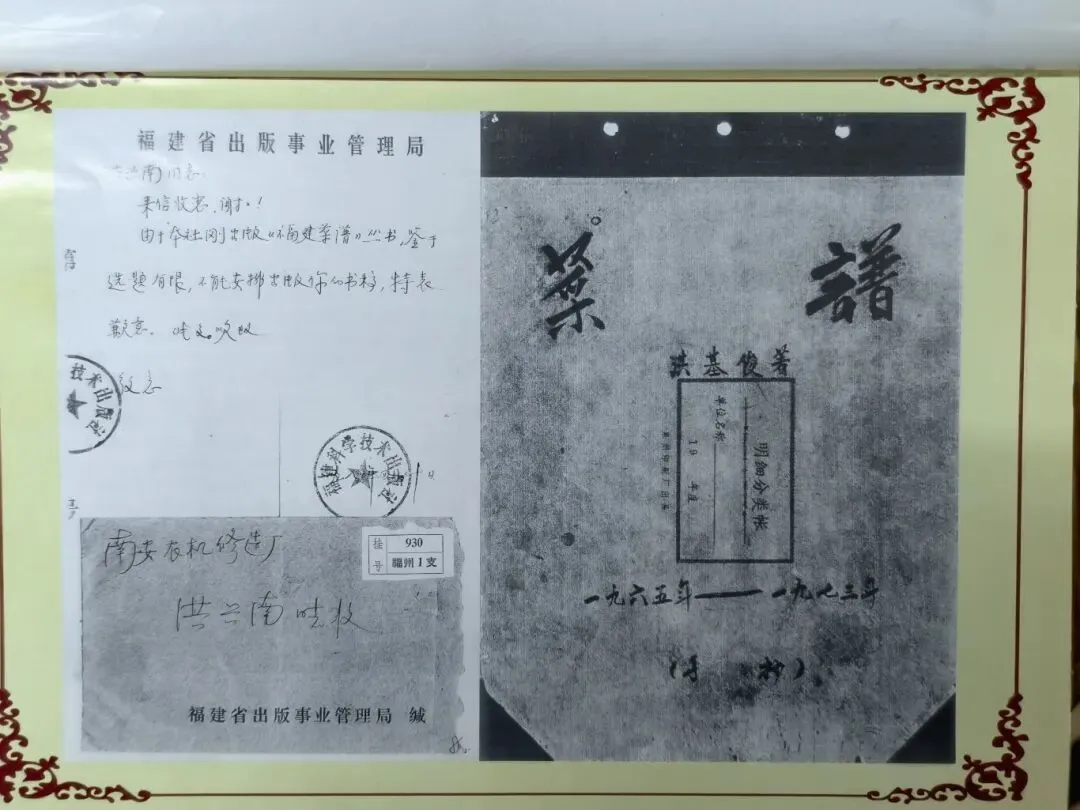 福建省出版事业管理局
来信收悉，谢谢！
由于本社刚出版《福建菜谱》丛书，鉴于
选题有限，不能安排出版你的书稿，特表
歉意。
福建科学技术出版社
南安农机修造厂
挂号
930
福州1支
洪兴南
收
福建省出版事业管理局 缄
菜 譜
洪基俊著
明细分类帐
单位名称
19 年度
一九六五年——一九七三年